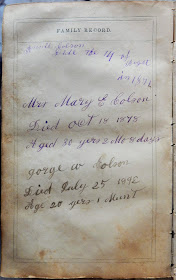 FAMILY RECORD.
Colson
Died the 14 of
in 1872
Mrs Mary E Colson
Died oct 18 1878
Aged 30 yers 2 Mo 8 days
gorge W Colson
Died July 25 1892
Age 20 yers 1 Munt